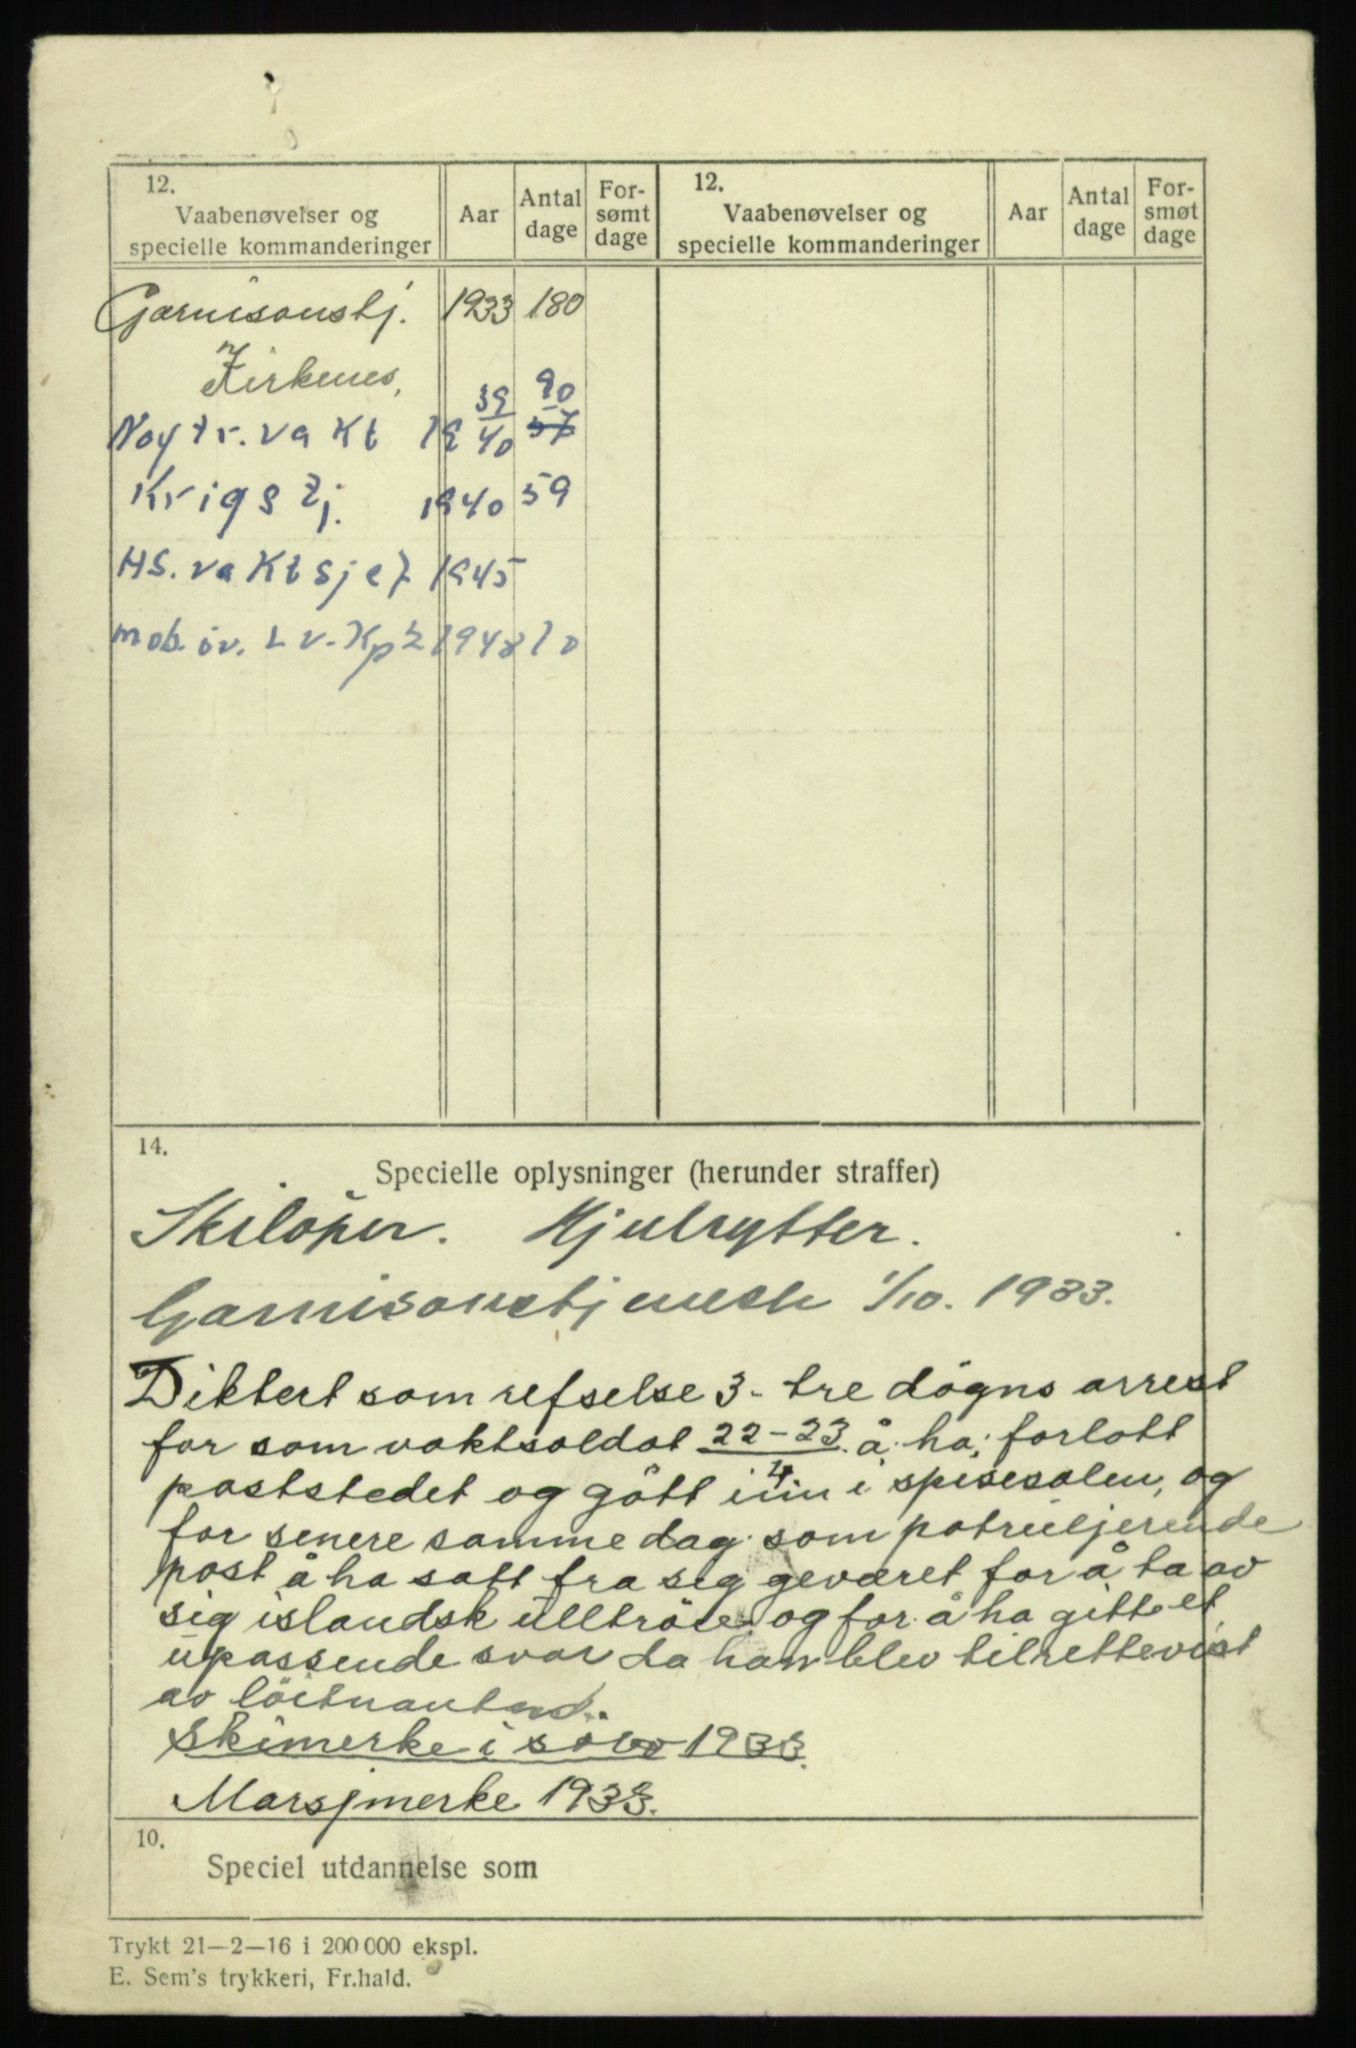 12.
Vaabenøvelser og
specielle kommanderinger
Aar
Antal
dage
For-
sømt
dage
12.
Vaabenøvelser og
specielle kommanderinger
Aar
Antal
dage
For-
smøt
dage
Garnisonstj. 1933 180
Kirkenes,
39 90
Nøytr. vakt 19 40 57
Krigstj. 1940 59
HS. vaktsjef 1945
mob. öv. Lv. Kp 2 1948 10
14.
Specielle oplysninger (herunder straffer)
Skilöper. Hjulrytter.
Garnisonstjeneste 1/10. 1933.
Diktert som refselse 3- tre dögns arrest
for som vaktsoldat 22-23/4 å ha forlatt
poststedet og gått inn i spisesalen, og
for senere samme dag som patruljerende
post å ha satt fra seg geværet for å ta av
sig islandsk ulltröie og for å ha gitt et
upassende svar da han blev tilrettevist
av löitnanten.
Skimerke i sölv 1933.
Marsjmerke 1933.
10.
Speciel utdannelse som
Trykt 21—2—16 i 200 000 ekspl.
E. Sem's trykkeri, Fr.hald.